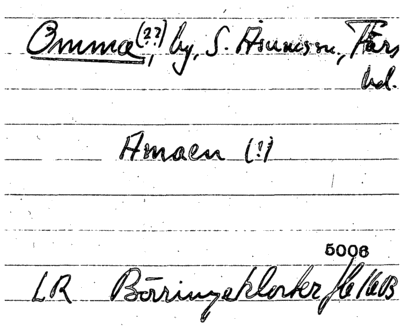 Omma(??), by, S. Åsumssn, Färs
hd.
Amaen (?)
5006
LR Börringekloster